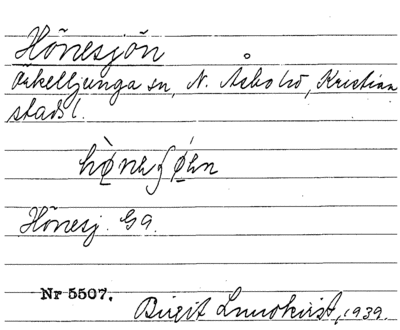 Hönesjön
Örkelljunga sn, N. Åsbo hd, Kristian
stads l.
Hönesj. G9.
Nr 5507.
Birgit Lundkvist, 1939.